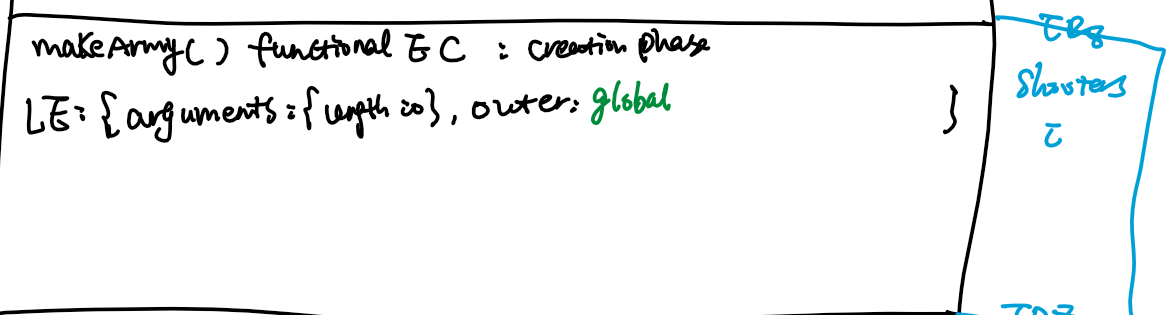 makeArmy() functional EC : creation phase
LE: { arguments: { length: 0}, outer: global }
shooters
i